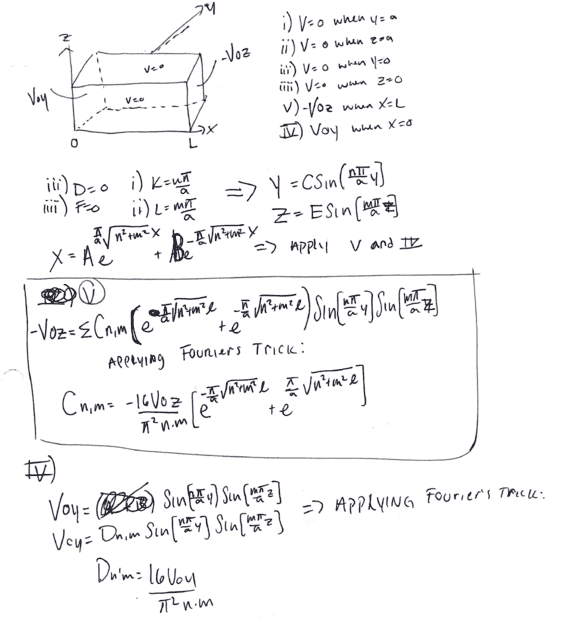 y
z
i) V=0 when y=a
V=0
-Voz
ii) V=0 when z=a
iii) V=0 when y=0
Voy
V=0
iiii) V=0 when z=0
V) -Voz when x=L
0
L
x
IV) Voy when x=0
iii) D=0 i) K=nπ/a => Y = C Sin(nπ/a y]
iiii) F=0 ii) L=mπ/a Z = E Sin[mπ/a z]
X = Ae^{π/a √n²+m² x} + Be^{-π/a √n²+m² x} => Apply V and IV
V
-Voz = ΣCn,m(e^{π/a √n²+m² l} + e^{-π/a √n²+m² l}) Sin[nπ/a y] Sin[mπ/a z]
Applying Fouriers Trick:
Cn,m = -16Voz/π² n·m [e^{-π/a √n²+m² l} + e^{π/a √n²+m² l}]
IV)
Voy = Sin[nπ/a y) Sin[mπ/a z] => Applying Fourier's Trick:
Voy = Dn,m Sin[nπ/a y] Sin[mπ/a z]
Dn,m = 16Voy/π² n·m